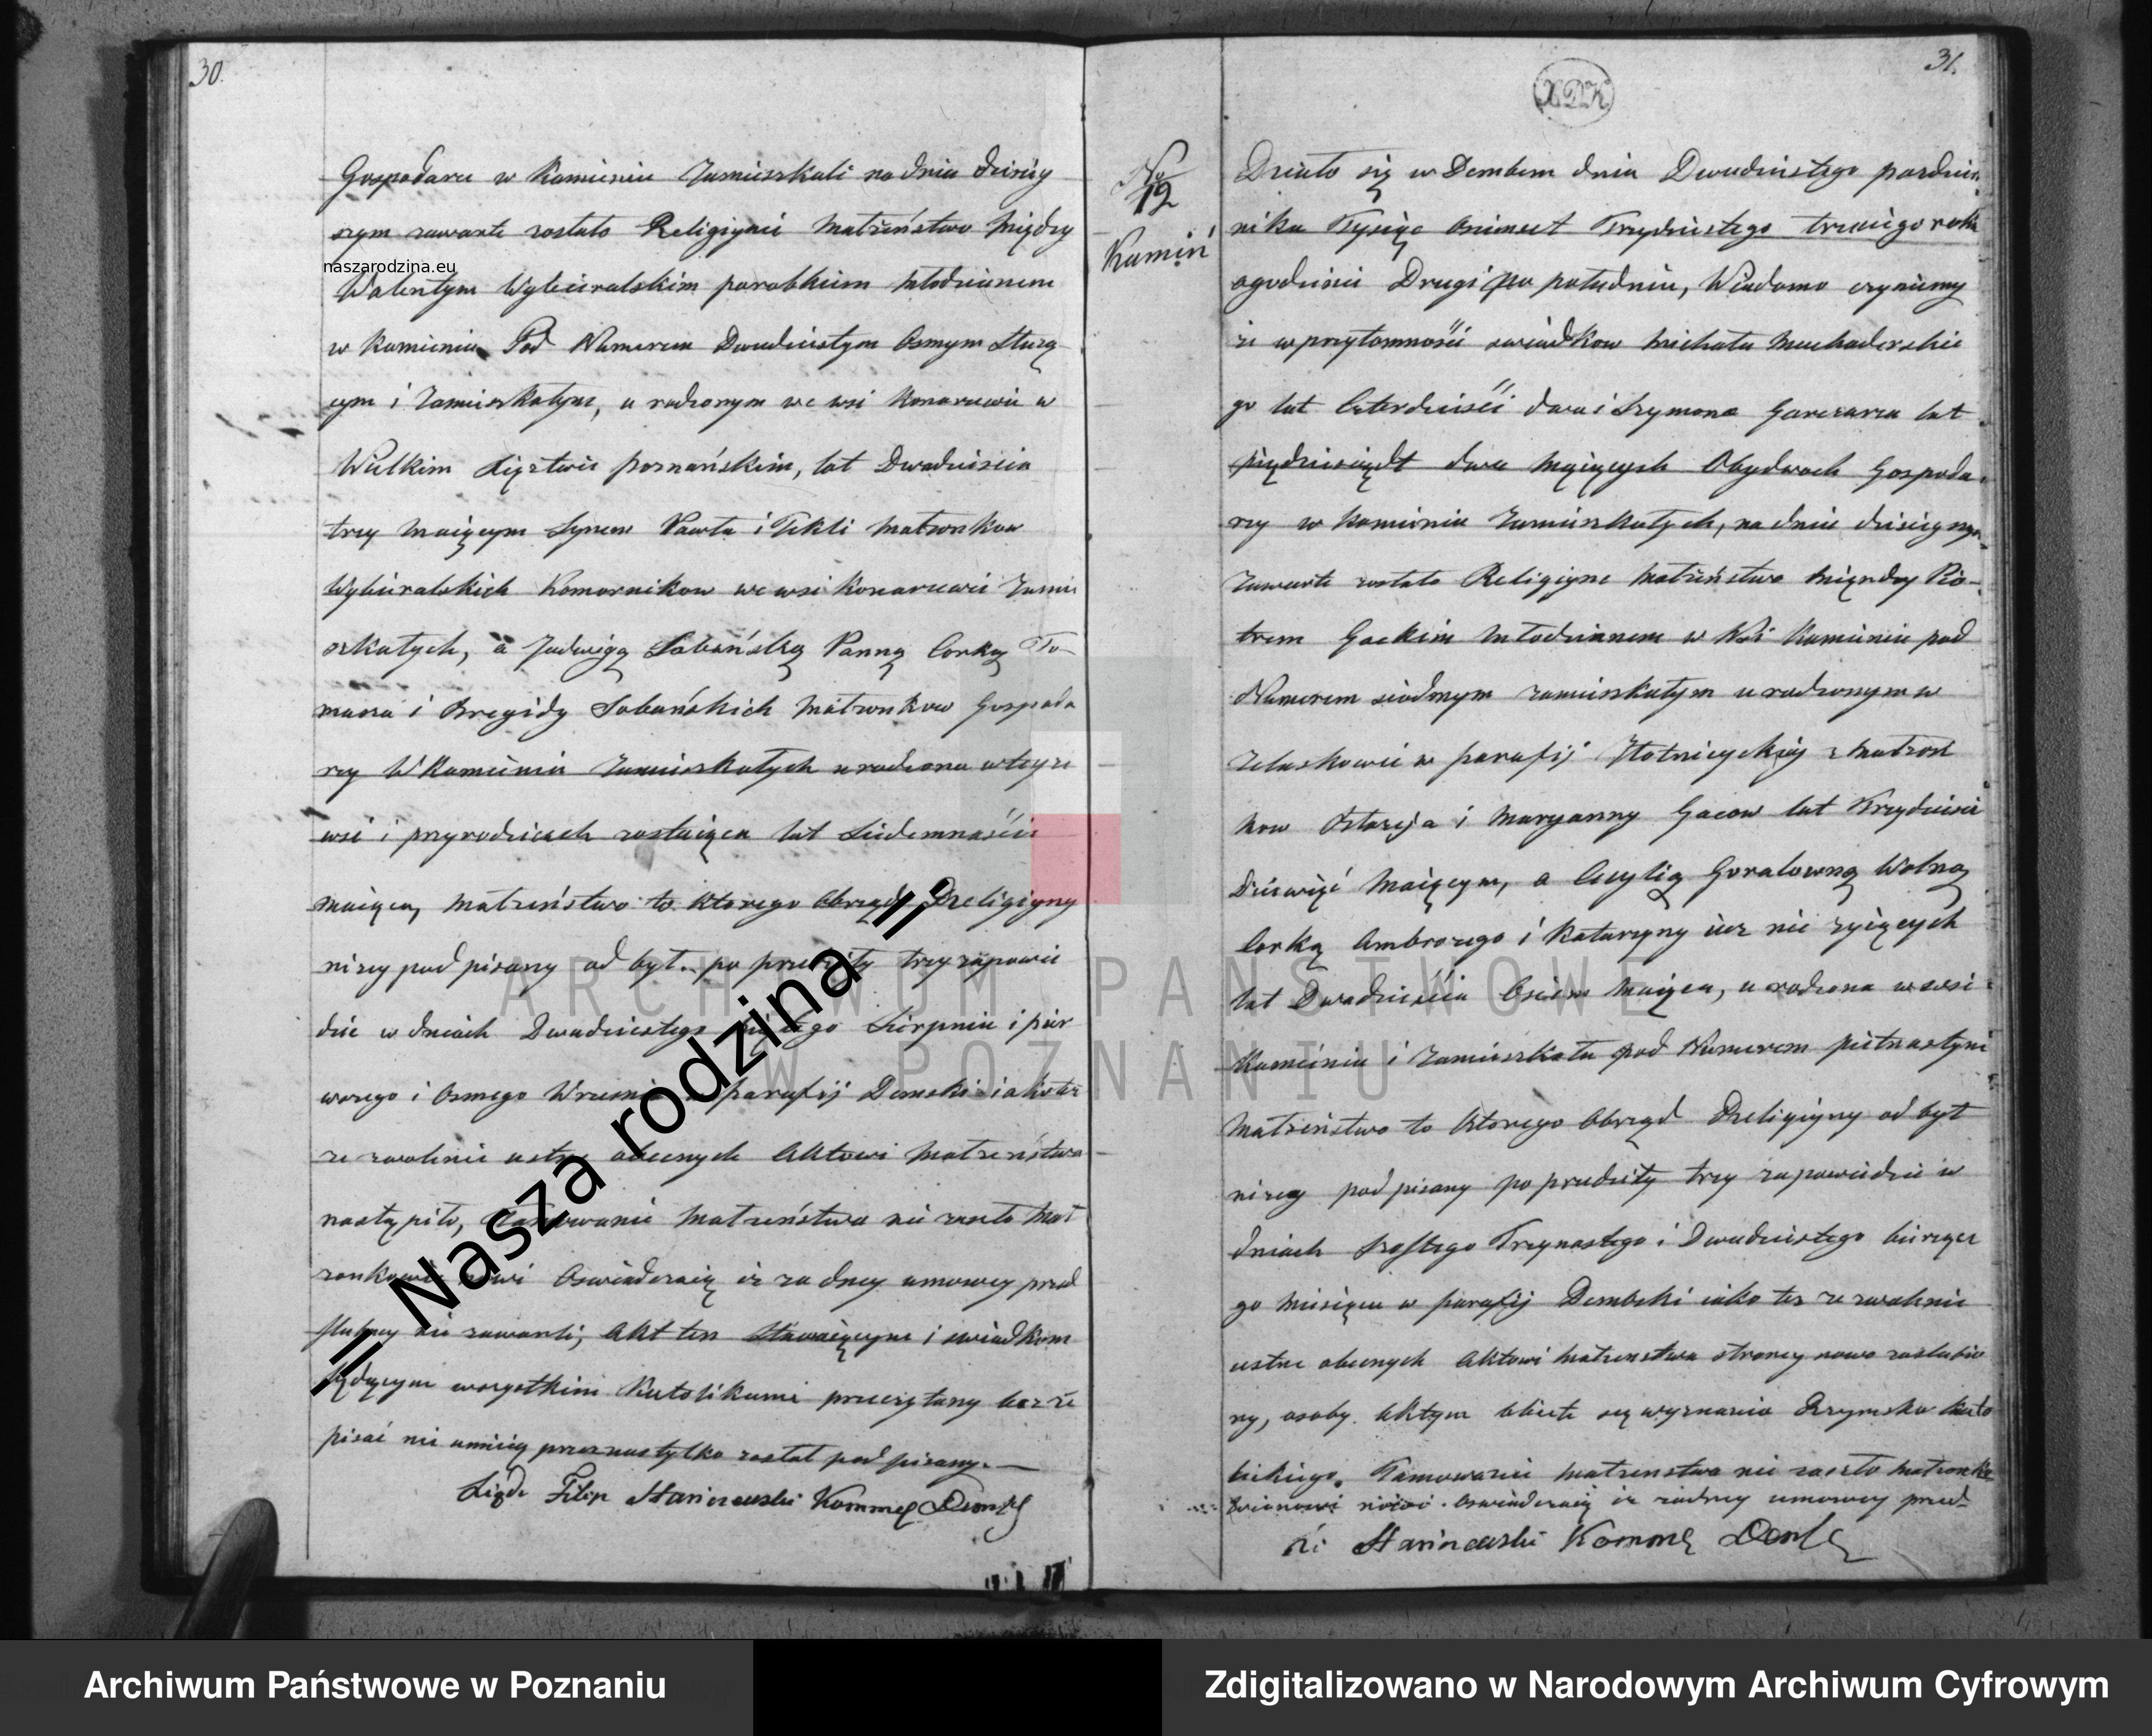 30.
Gospodarze w Kamieniu Zamieszkali na dniu dzisiey
szym zawarte zostało Religiyne Małżeństwo między
naszarodzina.eu
Walentym Wybieralskim parobkiem Młodzianem
w Kamieniu Pod Numerem Dwudziestym Osmym Służą
cym i Zamieszkałym, urodzonym we wsi Konarzewie w
Wielkim Xięztwie poznańskim, lat Dwadzieścia
trzy Maiącym Synem Pawła i Tekli Małżonkow
Wybieralskich Komornikow we wsi Konarzewie Zamie
szkałych, a Jadwigą Sobańską Panną Corką To-
masza i Bregidy Sobańskich Małżonkow Gospoda
rzy W Kamieniu Zamieszkałych urodzona w teyże
wsi i przy rodzicach zostaiąca lat Siedemnaście
maiąca, Małżeństwo to Ktorego Obrząd Religiyny
nizey podpisany odbył po trzy zapowie
dzie w dniach Dwudziestego Sierpnia i pier
wszego i Osmego parafij Dembski iako też
ze zwolenie ustne obecnych Aktowi Małżeństwa
nastąpiło, Tamowanie Małżeństwa nie zaszło Mał
żonkowie nowi Oswiadczaią iż żadney umowey przed
slubney nie zawarli, Akt ten Stawaiącym i swiadkom
będącym wszystkim Katolikami przeczytany lecz że
pisać nie umieią przez nas tylko został podpisany.—
Xiądz Filip Staniszewski Kommę Dembs
31.
XDK
No
12
Kamień
Działo się w Dembem dnia Dwudziestego pazdzier
nika Tysiąc Osimset Trzydziestego trzeciego roku
o godzinie Drugi po południu, Wiadomo czyniemy
że w przytomności swiadkow Michała Muchaderskie
go lat Czterdzieści dwa i Szymona Garczarza lat
pięćdziesiąt dwa Maiących Obydwoch Gospoda-
rzy w Kamieniu Zamieszkałych, na dniu dzisieyszym
Zawarte zostało Religiyne Małżeństwo między Pio-
trem Gackim Młodzianem w Wsi Kamieniu pod
Numerem siodmym zamieszkałym urodzonym w
Żelaskowie w parafij z Małżon
kow i Maryanny Gacow lat Trzydzieści
Dziewięć Maiącym, a Cecylią Goralowną Wolną
Corką Ambrozego i Katarzyny iuz nie zyiących
lat Dwadzieścia Osiem Maiąca, urodzona w wsi
Kamieniu i Zamieszkała pod Numerem pietnastym
Małżeństwo to Ktorego Obrząd Religiyny odbył
nizey podpisany po trzy zapowiedzie w
dniach szostego Trzynastego i Dwudziestego bierzące
go Miesiąca w parafij Dembski iako też ze zwolenie
ustne obecnych Aktowi Małżenstwa strony nowo zaslubio
ny, osoby Aktym obięte są wyznania Rzymsko Kato
lickiego. Tamowanie Małżenstwa nie zaszło Małżonko
nowi Oswiadczaią iż żadney umowey przed-
Staniszewski Kommę Dembs
ARCHIWUM PAŃSTWOWE
W POZNANIU
|| Nasza rodzina ||
Archiwum Państwowe w Poznaniu
Zdigitalizowano w Narodowym Archiwum Cyfrowym